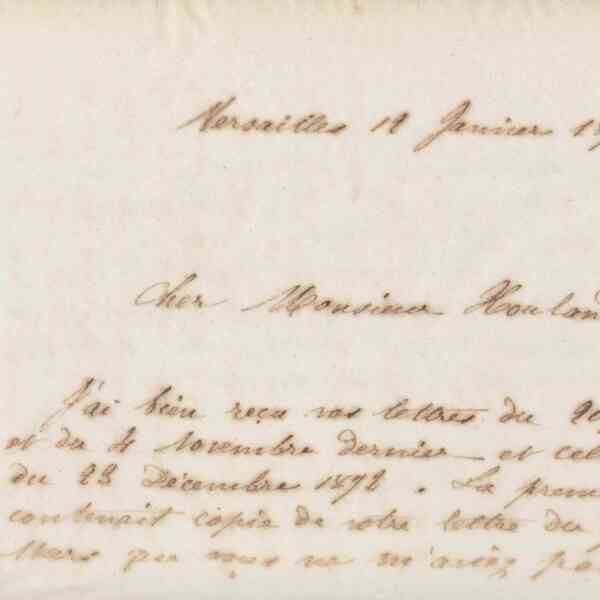 Versailles 19 Janvier 18
Cher Monsieur Houlan
J'ai bien reçu vos lettres du 29
et du 4 Novembre dernier et cel
du 23 Décembre 1872. La prem
contenait copie de votre lettre du
Mars que vous ne m'aviez pa